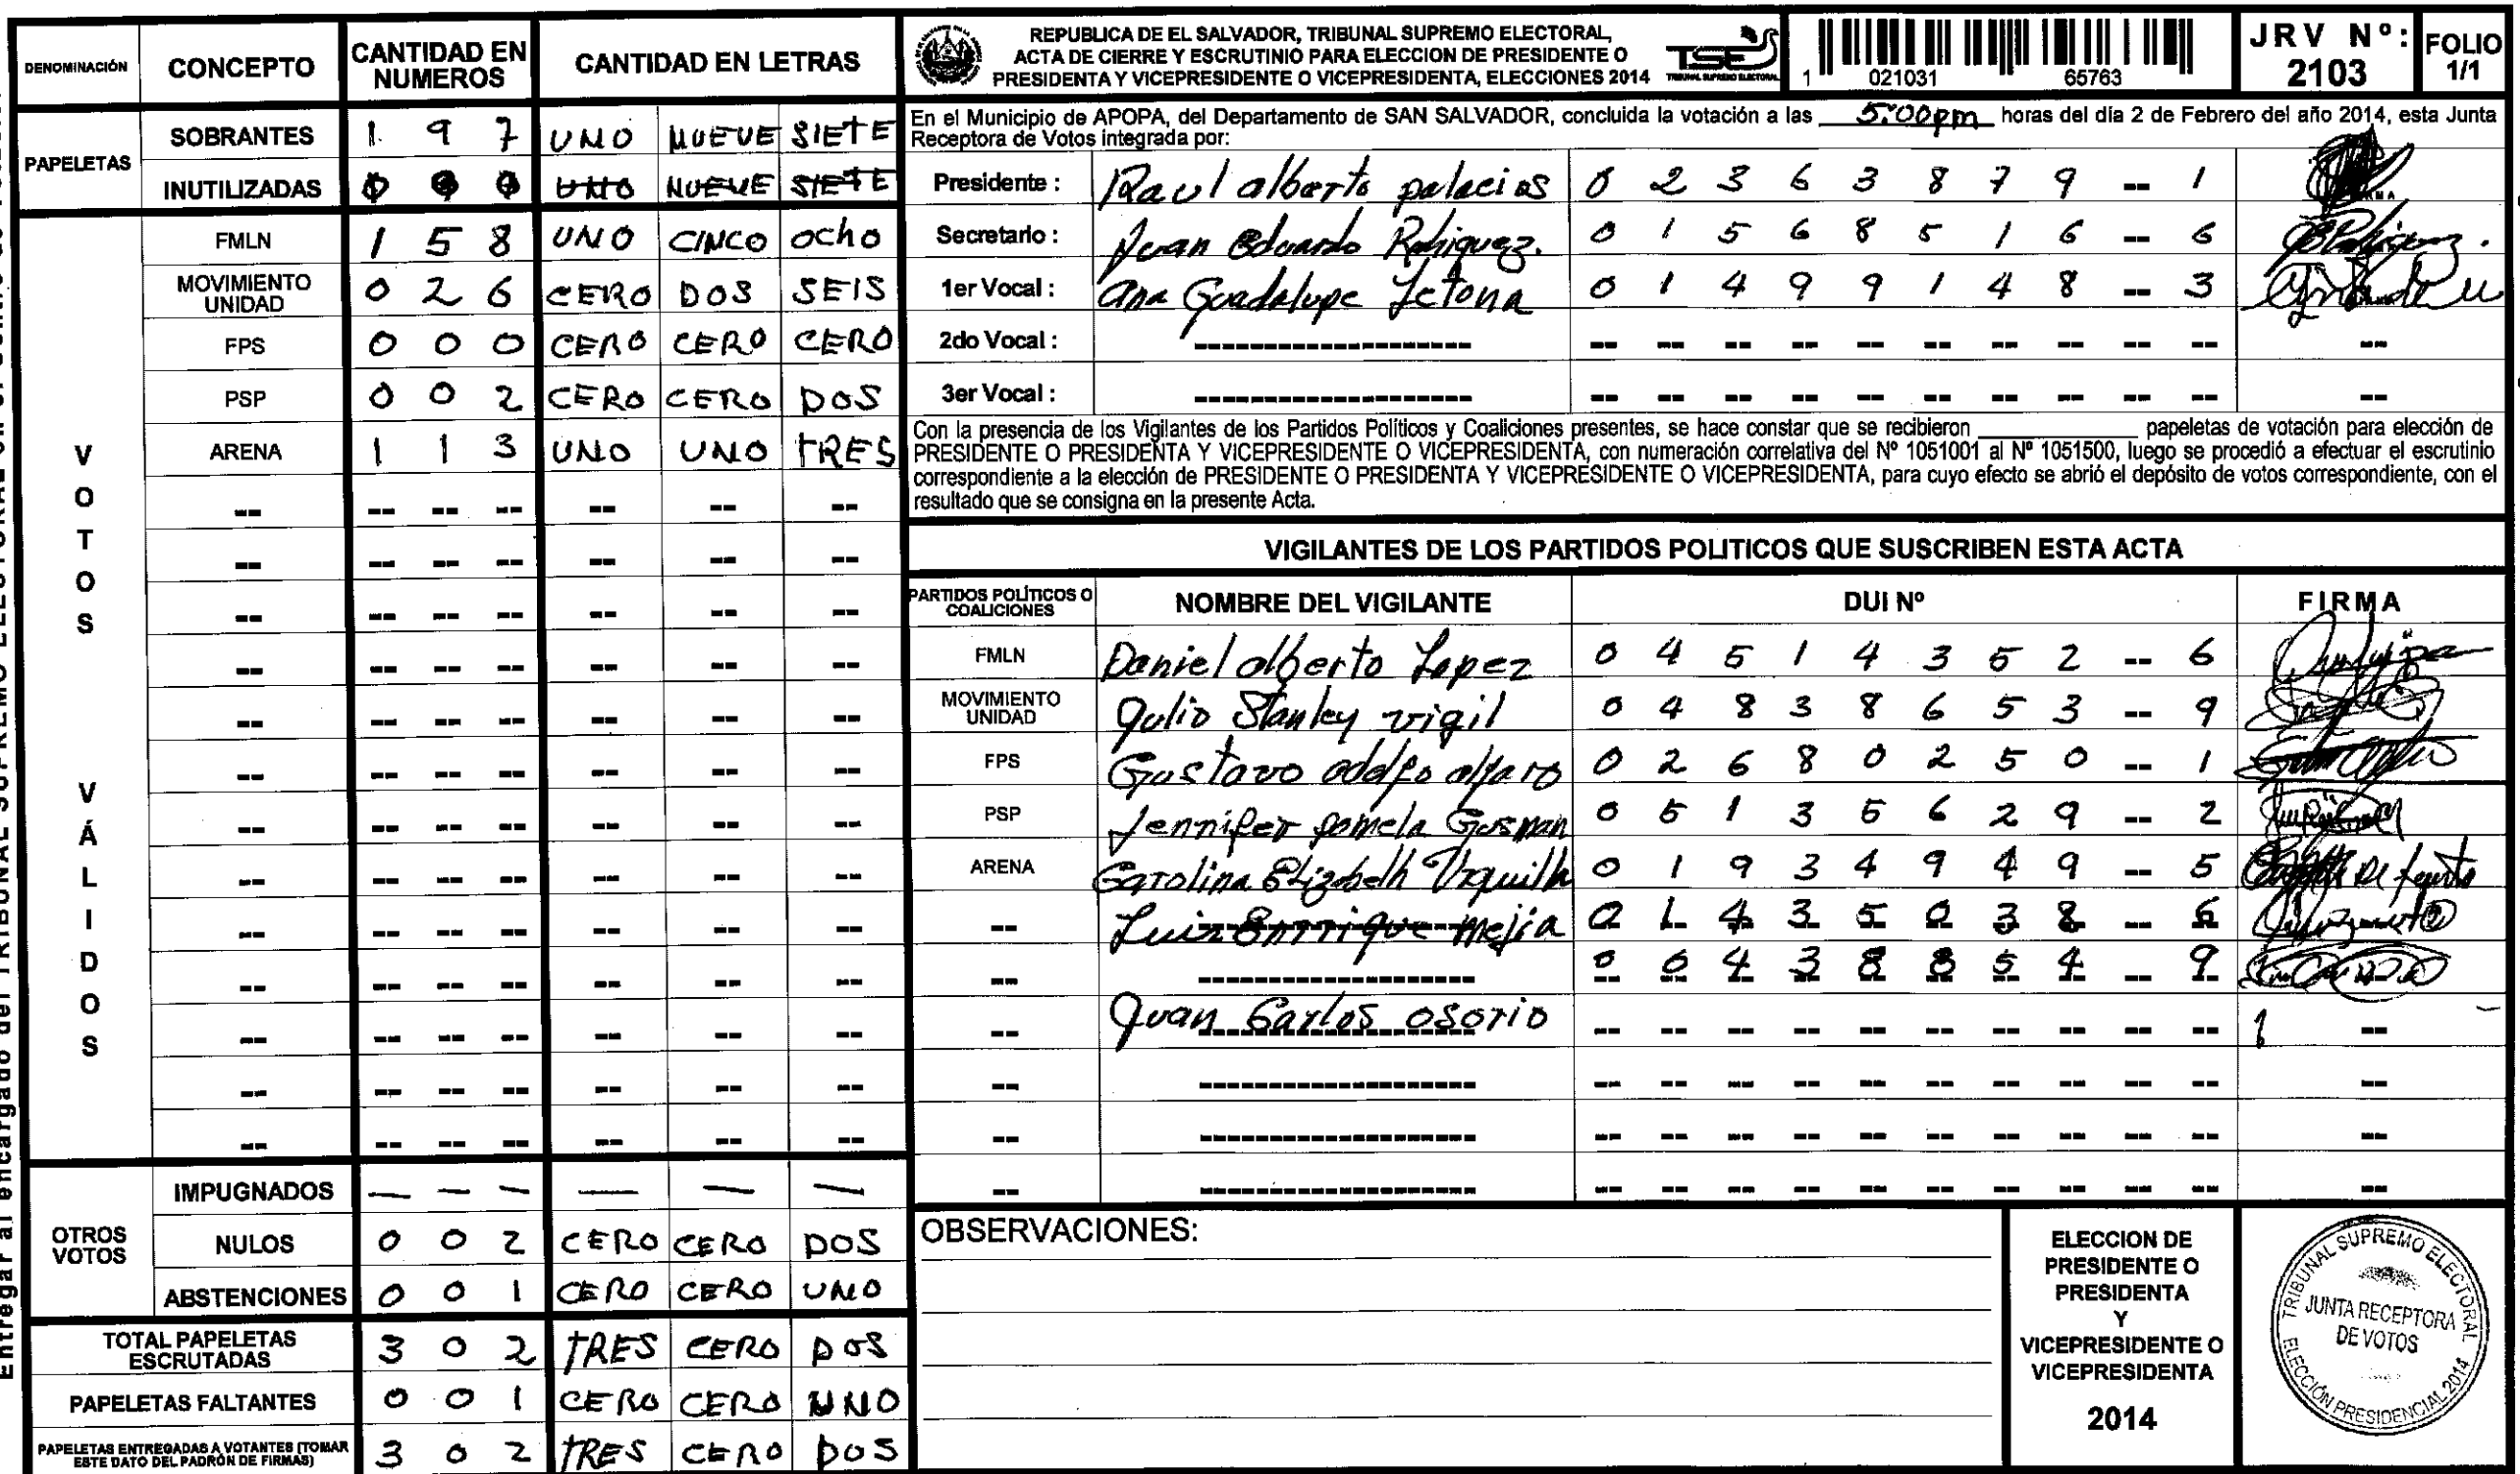 DENOMINACIÓN CONCEPTO CANTIDAD EN NUMEROS CANTIDAD EN LETRAS
PAPELETAS
SOBRANTES 1 9 7 UNO NUEVE SIETE
INUTILIZADAS UNO NUEVE SIETE
VOTOS VÁLIDOS
FMLN 1 5 8 UNO CINCO OCHO
MOVIMIENTO UNIDAD 0 2 6 CERO DOS SEIS
FPS 0 0 0 CERO CERO CERO
PSP 0 0 2 CERO CERO DOS
ARENA 1 1 3 UNO UNO TRES
-- -- -- -- -- -- --
-- -- -- -- -- -- --
-- -- -- -- -- -- --
-- -- -- -- -- -- --
-- -- -- -- -- -- --
-- -- -- -- -- -- --
-- -- -- -- -- -- --
-- -- -- -- -- -- --
-- -- -- -- -- -- --
-- -- -- -- -- -- --
-- -- -- -- -- -- --
-- -- -- -- -- -- --
-- -- -- -- -- -- --
OTROS VOTOS
IMPUGNADOS — — — — — —
NULOS 0 0 2 CERO CERO DOS
ABSTENCIONES 0 0 1 CERO CERO UNO
TOTAL PAPELETAS ESCRUTADAS 3 0 2 TRES CERO DOS
PAPELETAS FALTANTES 0 0 1 CERO CERO UNO
PAPELETAS ENTREGADAS A VOTANTES (TOMAR ESTE DATO DEL PADRÓN DE FIRMAS) 3 0 2 TRES CERO DOS
REPUBLICA DE EL SALVADOR, TRIBUNAL SUPREMO ELECTORAL,
ACTA DE CIERRE Y ESCRUTINIO PARA ELECCION DE PRESIDENTE O
PRESIDENTA Y VICEPRESIDENTE O VICEPRESIDENTA, ELECCIONES 2014
TSE
TRIBUNAL SUPREMO ELECTORAL
1 021031 65763
JRV Nº: 2103
FOLIO 1/1
En el Municipio de APOPA, del Departamento de SAN SALVADOR, concluida la votación a las 5:00pm horas del día 2 de Febrero del año 2014, esta Junta
Receptora de Votos integrada por:
Presidente : Raul alberto palacios 0 2 3 6 3 8 7 9 -- 1
Secretario : Juan Eduardo Rohiguez. 0 1 5 6 8 5 1 6 -- 6
1er Vocal : Ana Guadalupe Letona 0 1 4 9 9 1 4 8 -- 3
2do Vocal : -- -- -- -- -- -- -- -- -- -- --
3er Vocal : -- -- -- -- -- -- -- -- -- -- --
Con la presencia de los Vigilantes de los Partidos Políticos y Coaliciones presentes, se hace constar que se recibieron ________ papeletas de votación para elección de
PRESIDENTE O PRESIDENTA Y VICEPRESIDENTE O VICEPRESIDENTA, con numeración correlativa del Nº 1051001 al Nº 1051500, luego se procedió a efectuar el escrutinio
correspondiente a la elección de PRESIDENTE O PRESIDENTA Y VICEPRESIDENTE O VICEPRESIDENTA, para cuyo efecto se abrió el depósito de votos correspondiente, con el
resultado que se consigna en la presente Acta.
VIGILANTES DE LOS PARTIDOS POLITICOS QUE SUSCRIBEN ESTA ACTA
PARTIDOS POLÍTICOS O COALICIONES NOMBRE DEL VIGILANTE DUI Nº FIRMA
FMLN Daniel alberto Lopez 0 4 5 1 4 3 5 2 -- 6
MOVIMIENTO UNIDAD Julio Stanley vigil 0 4 8 3 8 6 5 3 -- 9
FPS Gustavo adolfo alfaro 0 2 6 8 0 2 5 0 -- 1
PSP Jennifer pamela Gusman 0 5 1 3 5 6 2 9 -- 2
ARENA Carolina Elizabeth Urquilla 0 1 9 3 4 9 4 9 -- 5
-- Luis Enrrique mejia 0 1 4 3 5 0 3 8 -- 6
-- 0 6 4 3 8 8 5 4 -- 9
-- Juan Carlos osorio -- -- -- -- -- -- -- -- -- --
-- -- -- -- -- -- -- -- -- -- -- --
-- -- -- -- -- -- -- -- -- -- -- --
-- -- -- -- -- -- -- -- -- -- -- --
OBSERVACIONES:
ELECCION DE
PRESIDENTE O
PRESIDENTA
Y
VICEPRESIDENTE O
VICEPRESIDENTA
2014
TRIBUNAL SUPREMO ELECTORAL
JUNTA RECEPTORA
DE VOTOS
ELECCIÓN PRESIDENCIAL 2014